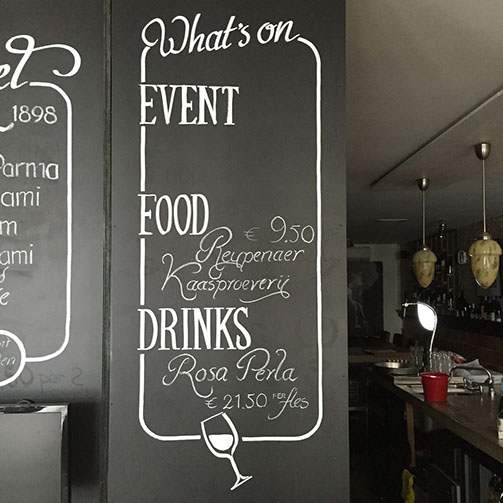 el
1898
Parma
ami
m
ami
What's on
EVENT
FOOD
€ 9.50
Reypenaer
Kaasproeverij
DRINKS
Rosa Perla
€ 21.50 PER fles